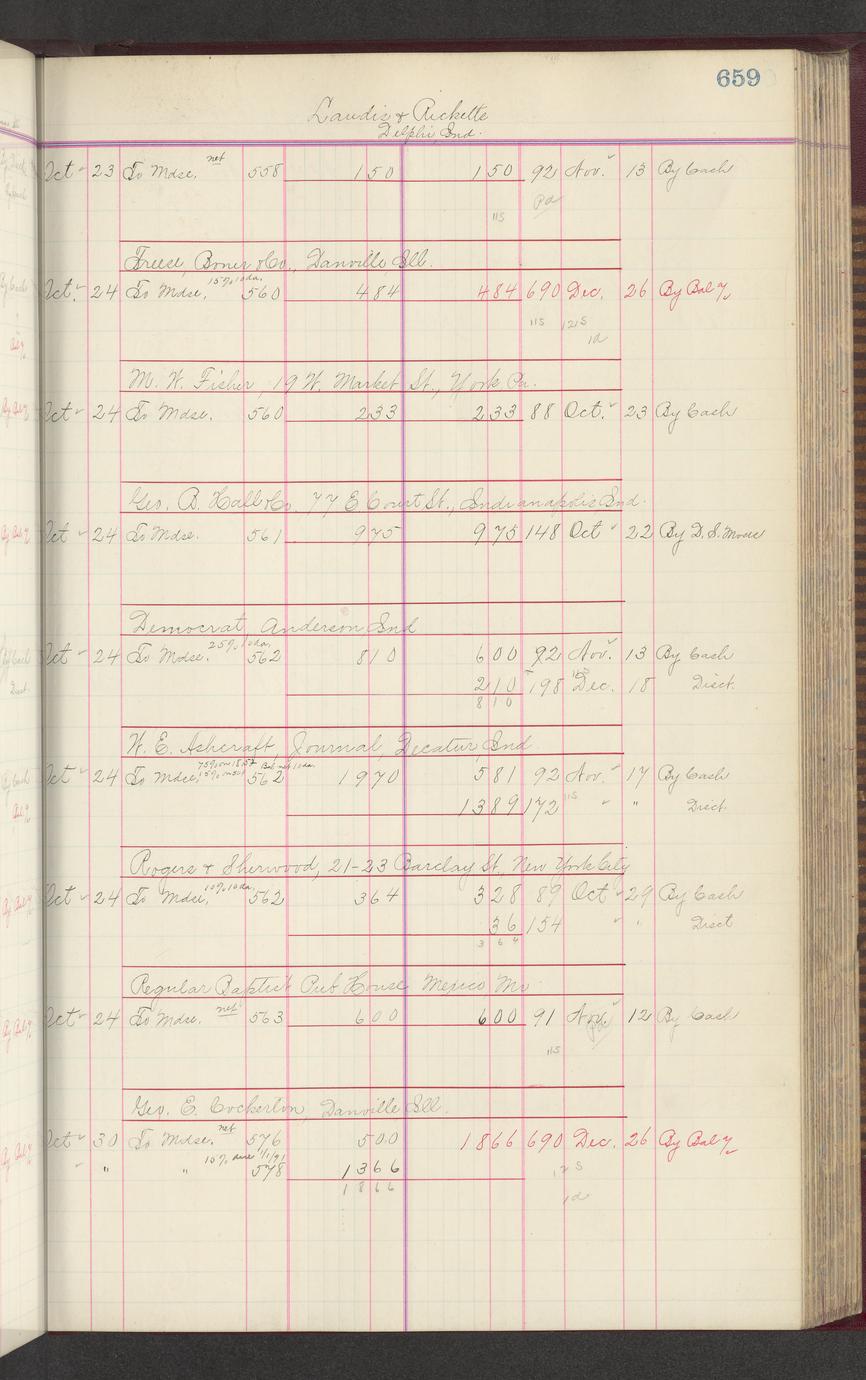 659
Landis & Ricketts
Delphi Ind.
Oct 23 To Mdse. net 558 150 150 92 Nov. 13 By Cash
Pd
115
Freese, Boner & Co., Danville Ill.
Oct. 24 To Mdse. 15% 10 da. 560 484 484 690 Dec. 26 By Bal %
115 1215
1d
M. W. Fisher, 19 W. Market St., York Pa.
Oct 24 To Mdse. 560 233 233 88 Oct. 23 By Cash
Geo. B. Hall & Co. 77 E Court St., Indianapolis Ind.
Oct 24 To Mdse. 561 975 975 148 Oct 22 By D. S. Moore
Democrat, Anderson Ind
Oct 24 To Mdse. 25% 10 da. 562 810 600 92 Nov. 13 By Cash
210 198 Dec. 18 Disct.
810
W. E. Ashcraft, Journal, Decatur Ind.
Oct 24 To Mdse. 562 1970 581 92 Nov. 17 By Cash
1389 172 115 " " Disct.
Rogers & Sherwood, 21-23 Barclay St, New York City
Oct 24 To Mdse. 10% 10 da 562 364 328 89 Oct 29 By Cash
36 154 " " Disct
364
Regular Baptist Pub House Mexico Mo
Oct 24 To Mdse. net 563 600 600 91 Nov. 12 By Cash
115
Geo. E. Cockerton, Danville Ill.
Oct 30 To Mdse. net 576 500 1866 690 Dec. 26 By Bal %
" " " 10% due 1/1/91 578 1366
1866
1d